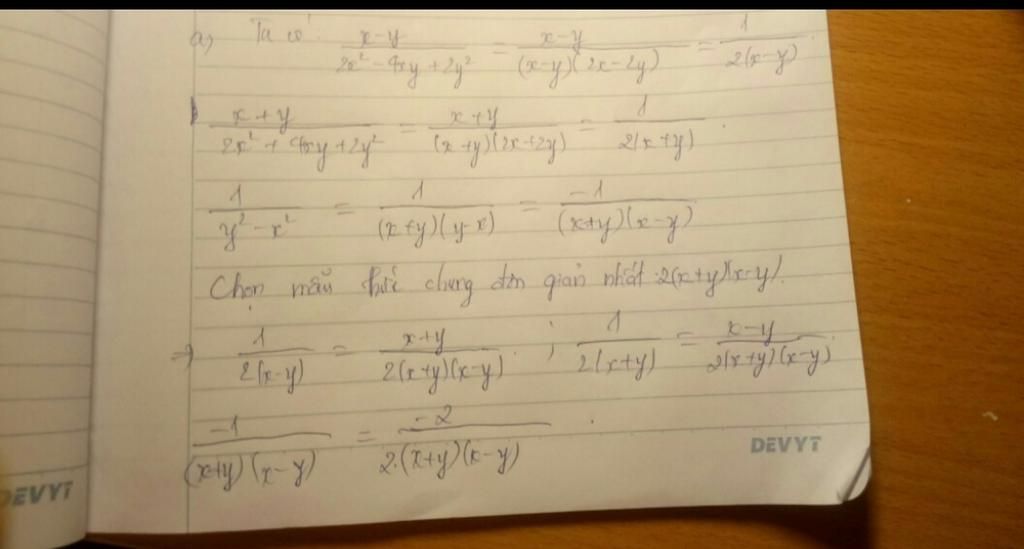 a) Ta có: \frac{x-y}{2x^2-4xy+2y^2} = \frac{x-y}{(x-y)(2x-2y)} = \frac{1}{2(x-y)}.
\frac{x+y}{2x^2+4xy+2y^2} = \frac{x+y}{(x+y)(2x+2y)} = \frac{1}{2(x+y)}.
\frac{1}{y^2-x^2} = \frac{1}{(x+y)(y-x)} = \frac{-1}{(x+y)(x-y)}
Chọn mẫu thức chung đơn giản nhất: 2(x+y)(x-y).
⇒ \frac{1}{2(x-y)} = \frac{x+y}{2(x+y)(x-y)}. ; \frac{1}{2(x+y)} = \frac{x-y}{2(x+y)(x-y)}
\frac{-1}{(x+y)(x-y)} = \frac{-2}{2.(x+y)(x-y)}.
DEVYT
DEVYT